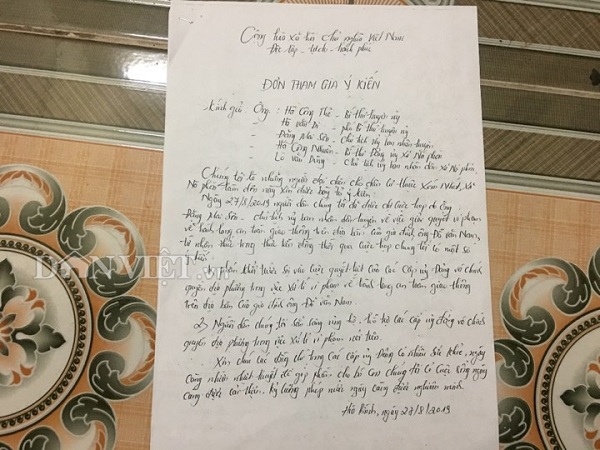 Cộng hòa xã hội chủ nghĩa Việt Nam
Độc lập - tự do - hạnh phúc
ĐƠN THAM GIA Ý KIẾN
Kính gửi Ông: Hà Công Thẻ - Bí thư huyện ủy
Hà Văn Di - phó bí thư huyện ủy
- Đặng Như Sơn - Chủ tịch ủy ban nhân huyện
- Hà Công Nhuận - Bí thư Đảng ủy xã Nà phòn
- Lò Văn Dũng - Chủ tịch ủy ban nhân dân xã Nà phòn
Chúng tôi là những người đại diện cho dân cư thuộc xóm Nhót, xã
Nà phòn làm đơn này xin được bày tỏ ý kiến:
Ngày 27/8/2019 người dân chúng tôi đã được dự cuộc họp do Ông
Đặng Như Sơn - Chủ tịch ủy ban nhân dân huyện về việc giải quyết vi phạm
về hành lang an toàn giao thông trên địa bàn của gia đình ông Đỗ Văn Nam,
tự nhân thức trong thực tiễn đồng thời qua cuộc họp chúng tôi có một số
ý kiến
DANVIET.VN
quyền địa phương trong việc xử lí vi phạm về hành lang an toàn giao thông
trên địa bàn của gia đình ông Đỗ Văn Nam.
2) Người dân chúng tôi sẵn sàng ủng hộ, hỗ trợ các cấp ủy đảng và chính
quyền địa phương trong việc xử lí vi phạm nói trên.
Xin chúc các đồng chí trong các cấp ủy Đảng có nhiều sức khỏe, ngày
càng nhiều nhiệt huyết để góp phần cho bà con chúng tôi có cuộc sống ngày
càng được cải thiện. Kỷ cương phép nước ngày càng được nghiêm minh
Hòa Bình, ngày 27/8/2019